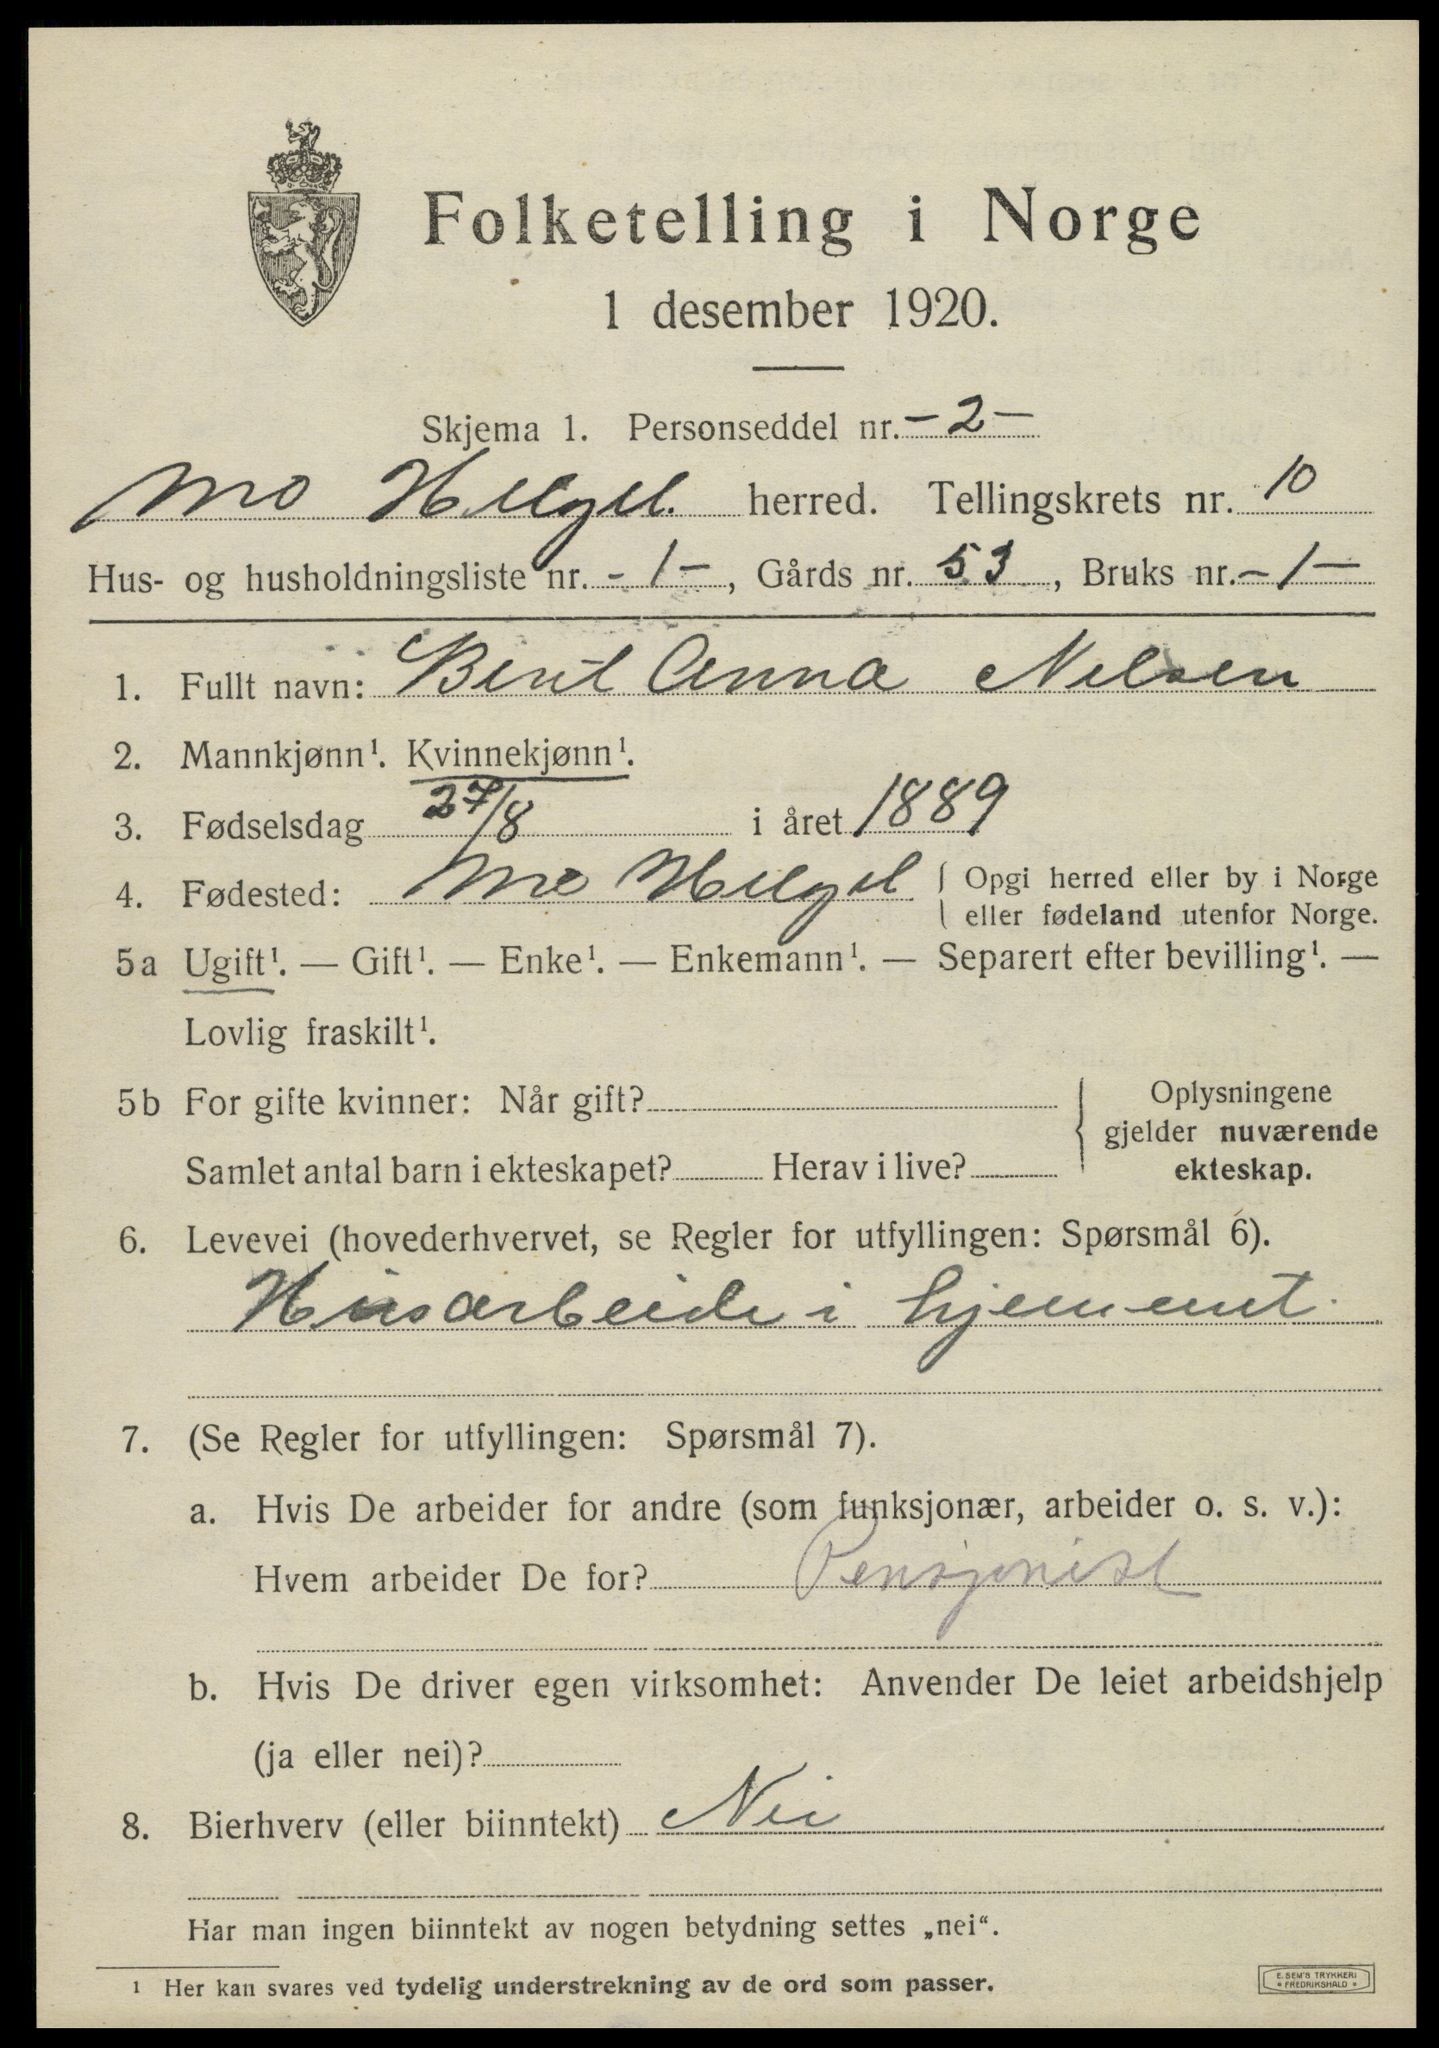 Folketelling i Norge
1 desember 1920.
Skjema 1. Personseddel nr. -2-
Mo Helgel. herred. Tellingskrets nr. 10
Hus- og husholdningsliste nr. -1-, Gårds nr. 53, Bruks nr. -1-
1. Fullt navn: Berit Anna Nilsen
2. Mannkjønn¹. Kvinnekjønn¹.
3. Fødselsdag 27/8 i året 1889
4. Fødested: Mo Helgel { Opgi herred eller by i Norge
eller fødeland utenfor Norge.
5a Ugift¹. — Gift¹. — Enke¹. — Enkemann¹. — Separert efter bevilling¹. —
Lovlig fraskilt¹.
5b For gifte kvinner: Når gift?
Samlet antal barn i ekteskapet? Herav i live?
Oplysningene
gjelder nuværende
ekteskap.
6. Levevei (hovederhvervet, se Regler for utfyllingen: Spørsmål 6).
Husarbeide i hjemmet.
7. (Se Regler for utfyllingen: Spørsmål 7).
a. Hvis De arbeider for andre (som funksjonær, arbeider o. s. v.):
Hvem arbeider De for? Pensjonist
b. Hvis De driver egen virksomhet: Anvender De leiet arbeidshjelp
(ja eller nei)?
8. Bierhverv (eller biinntekt) Nei
Har man ingen biinntekt av nogen betydning settes „nei“.
¹ Her kan svares ved tydelig understrekning av de ord som passer.
E. SEM'S TRYKKERI
* FREDRIKSHALD *